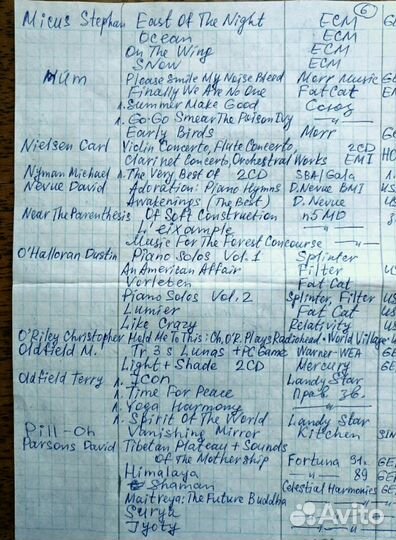 6
Micus Stephan East Of The Night ECM GE
Ocean ECM
On The Wing ECM
Snow ECM
Múm Please Smile My Noise Bleed Morr Music GE
Finally We Are No One FatCat EN
1. Summer Make Good Союз
1. Go Go Smear The Poison Ivy —"—
Early Birds Morr
Nielsen Carl Violin Concerto, Flute Concerto 2CD GE
Clarinet Concerto Orchestral Works EMI HO
Nyman Michael 1. The Very Best Of 2CD SBA/Gala
Nevue David Adoration: Piano Hymns D. Nevue BMI US
Awakenings (The Best) D. Nevue US
Near The Parenthesis Of Soft Construction n5MD
L'eixample
Music For The Forest Concourse —"—
O'Halloran Dustin Piano Solos Vol. 1 Splinter
An American Affair Filter US
Vorleben Fat Cat
Piano Solos Vol. 2 Splinter, Filter US
Lumier Fat Cat US
Like Crazy Relativity US
O'Riley Christopher Hold Me To This: Ch. O'R. Plays Radiohead • World Village
Oldfield M. Tr 3 s Lunas + PC Game Warner-WEA GE
Light + Shade 2CD Mercury GE
Oldfield Terry 1. Icon Landy Star
1. Time For Peace
1. Yoga Harmony
1. Spirit Of The World Landy Star
Pill-Oh Vanishing Mirror Kitchen SIN
Parsons David Tibetan Plateau + Sounds
Of The Mothership Fortuna 91 GE
Himalaya —"— 89 GE
Shaman Celestial Harmonies GE
Maitreya: The Future Buddha —"—
Surya
Jyoty —"—
Avito